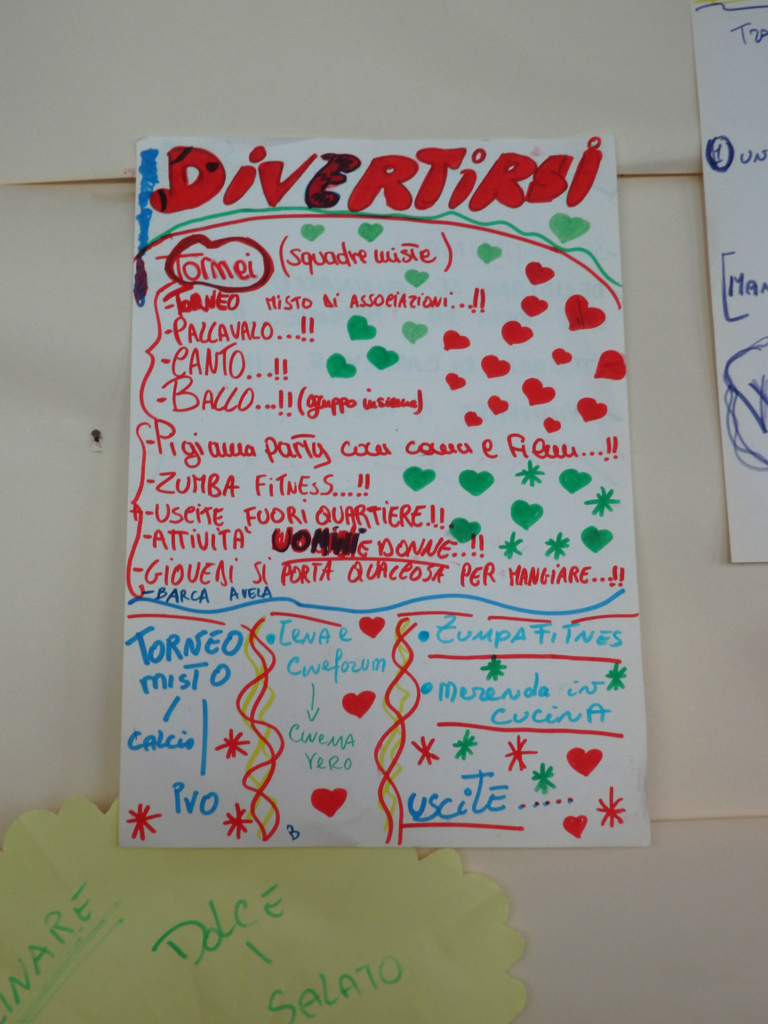 DIVERTIRSI
Tornei (squadre miste)
-TORNEO MISTO DI ASSOCIAZIONI...!!
-PALLAVALO...!!
-CANTO...!!
-BALLO...!! (gruppo insieme)
-Pigiama party con cena e film...!!
-ZUMBA FITNESS...!!
-USCITE FUORI QUARTIERE.!!
-ATTIVITA' UOMINI E DONNE..!!
-GIOVEDI SI PORTA QUALCOSA PER MANGIARE...!!
-BARCA A VELA
TORNEO
MISTO
CALCIO
PVO
• CENA E
CINEFORUM
CINEMA
VERO
B
• ZUMPA FITNES
• Merenda in
CUCINA
USCITE.....
1 UN
[MAN
INARE
DOLCE
SALATO